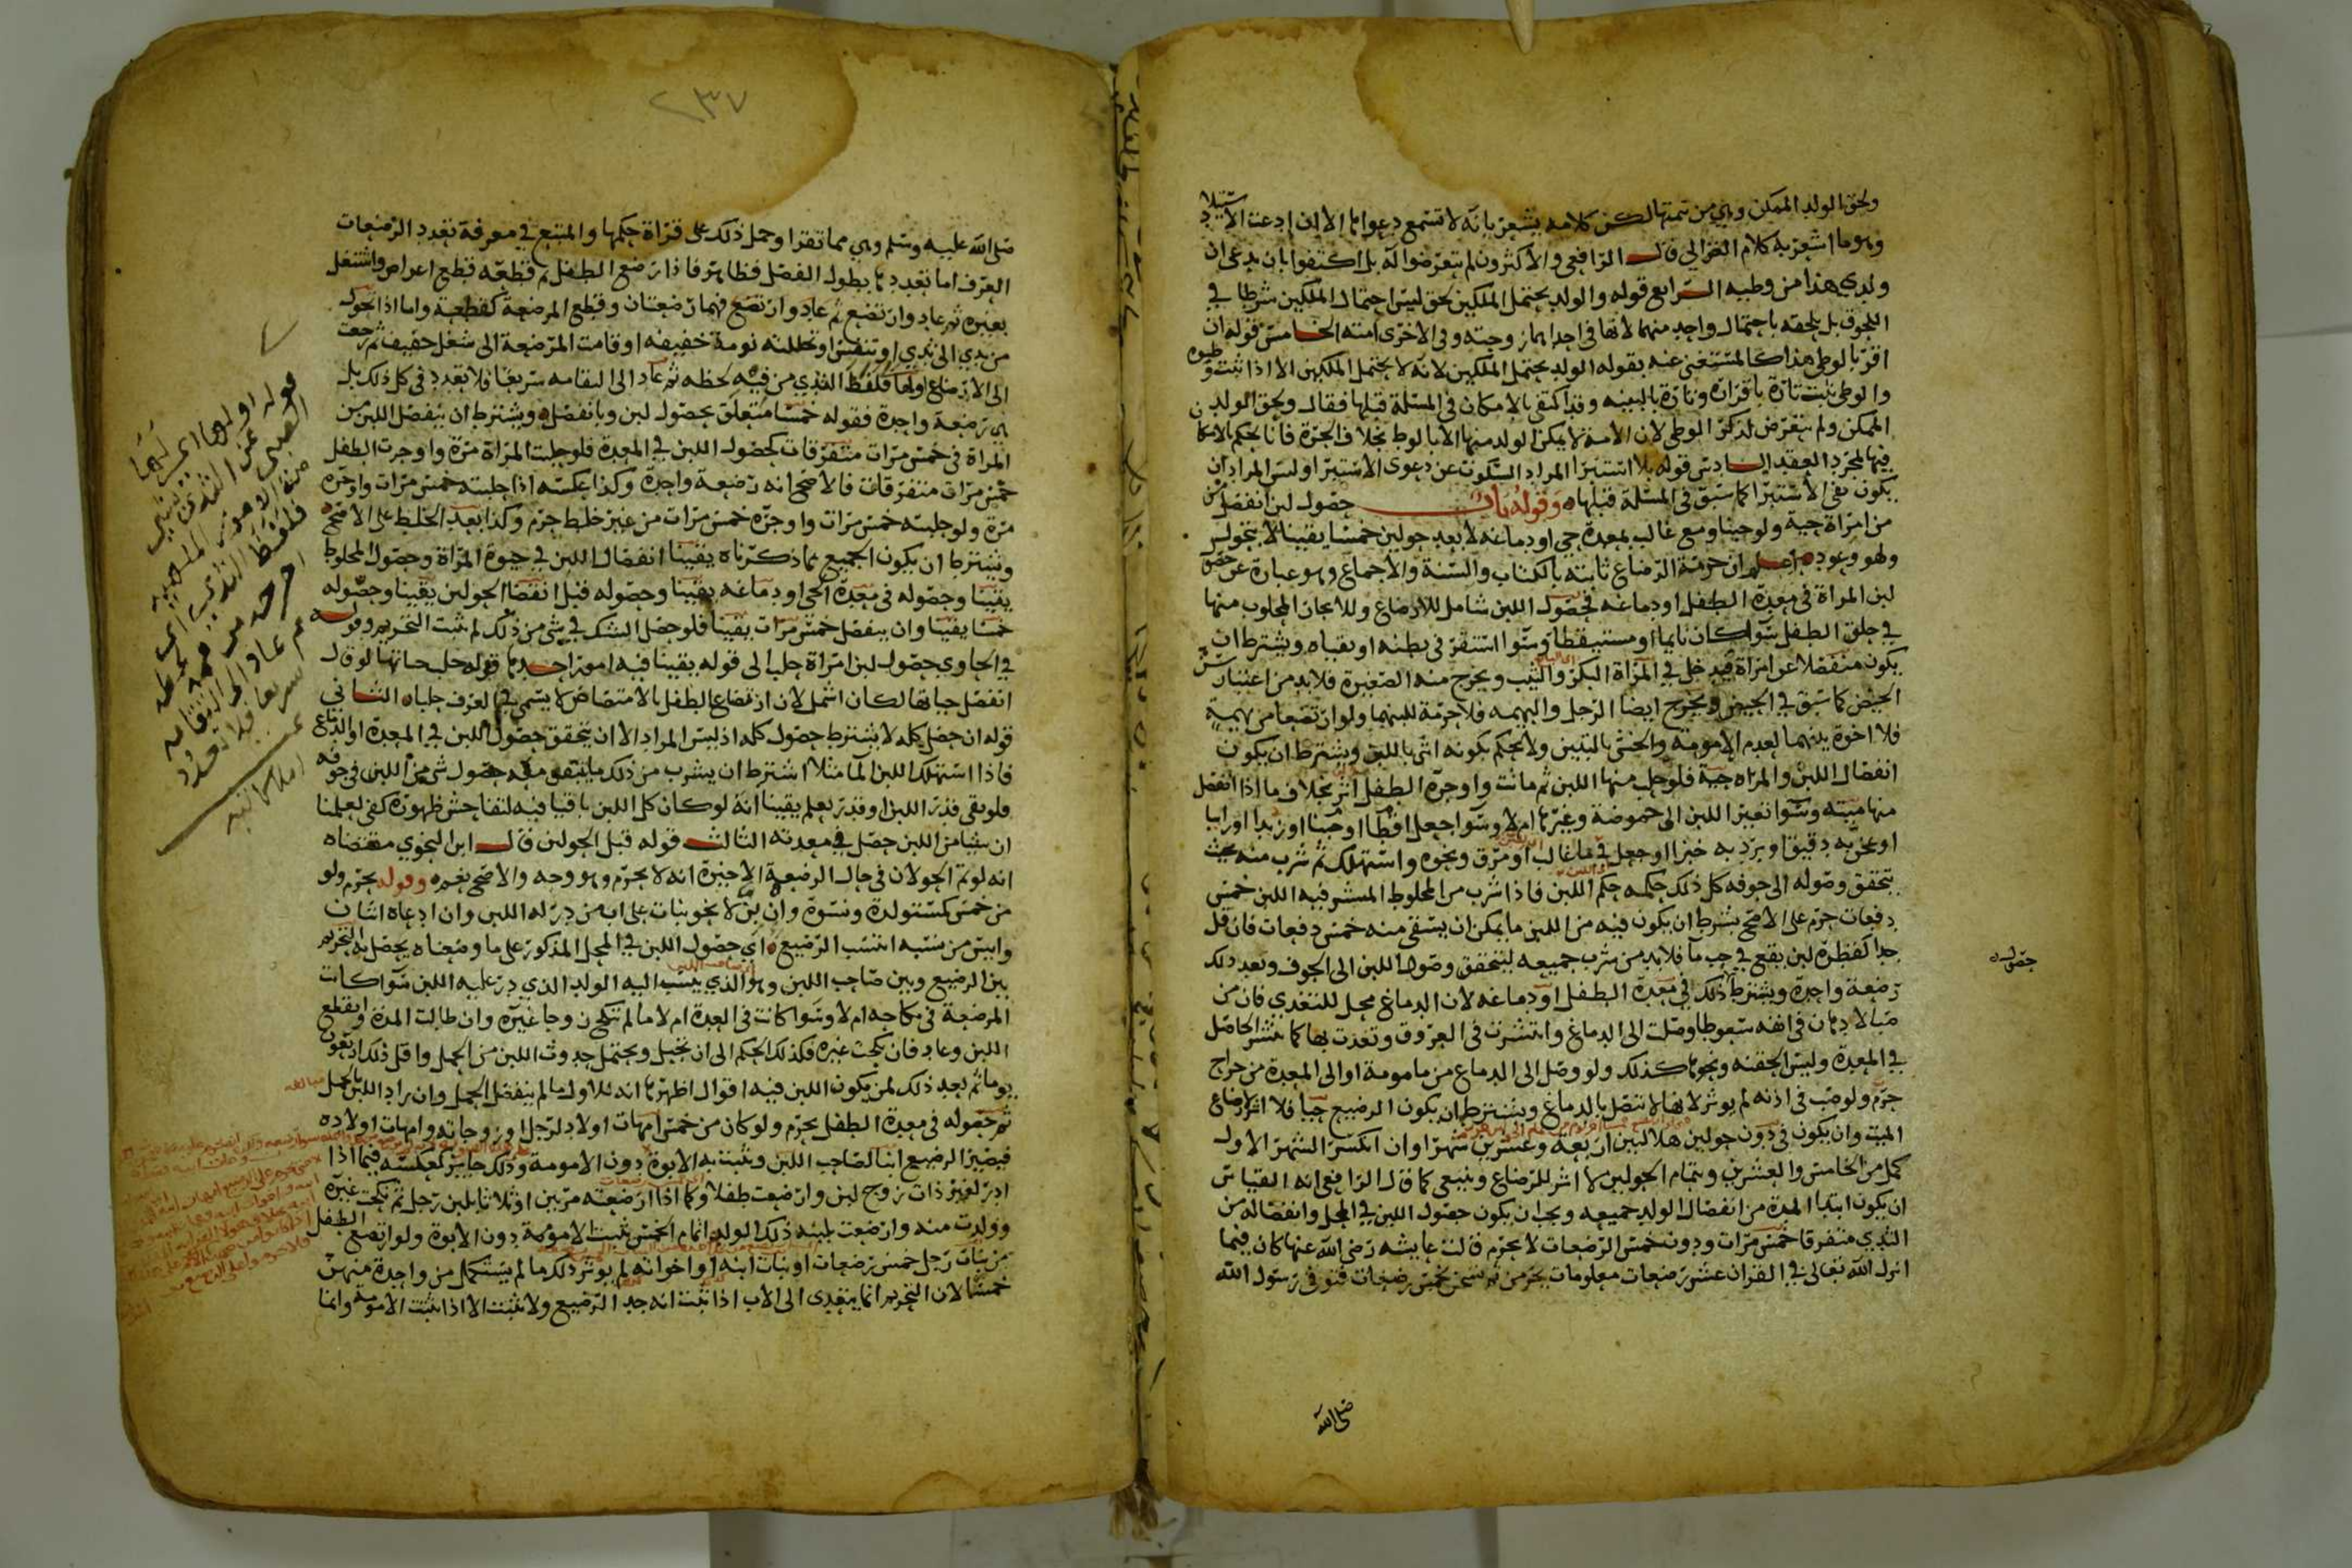 ولحق الولد الممكن وهي من تتمتها لكن كلامه يشعر بانه لا تسمع دعواها الا ان ادعت الاستيلاد
وهو ما اشعر به كلام الغزالي قال الرافعي والاكثرون لم يتعرضوا له بل اكتفوا بان يدعى ان
ولدي هذا من وطيه الرابع قوله والولد يحتمل الملكين لحق ليس احتمال الملكين شرطا في
اللحوق بل يلحقه باحتمال واحد منهما لانها في احداهما زوجته وفي الاخرى امته الخامس قوله ان
اقر بالوطي هذا كالمستغنى عنه بقوله الولد يحتمل الملكين لانه لا يحتمل الملكين الا اذا ثبت وطيه
والوطي يثبت تارة باقراره وتارة بالبينه وقد اكتفى بالامكان في المسئلة قبلها فقال ولحق الولد
الممكن ولم يتعرض لذكر الوطي لان الامة لا يمكن الولد منها الا بالوط بخلاف الحرة فانا نحكم بالامكان
فيها بمجرد العقد السادس قوله بلا استبرا المراد السكوت عن دعوى الاستبرا وليس المراد ان
يكون نفي الاستبرا كما سبق في المسئلة قبلها وقوله باب حصول لبن انفصل من
من امراة حية ولو جبنا ومع غالب بمعدة حي او دماغه لا بعد حولين خمسا يقينا لا بتحول
ولهو وعود اعلم ان حرمة الرضاع ثابته بالكتاب والسنة والاجماع وهو عبارة عن حصول
لبن المراة في معدة الطفل او دماغه فحصول اللبن شامل للارضاع وللايجار المحلوب منها
في حلق الطفل سوا كان نايما او مستيقظا وسوا استقر في بطنه او تقياه ويشترط ان
يكون منفصلا عن امراة فيدخل في المراة البكر والثيب ويخرج منه الصغيرة فلا بد من اعتبار سن
الحيض كما سبق في الحيض ويخرج ايضا الرجل والبهيمه فلا حرمة للبنهما ولو ارتضعا من بهيمة
فلا اخوة بينهما لعدم الامومة والخنثى بالتبين ولا يحكم بكونه انثى باللبن ويشترط ان يكون
انفصال اللبن والمراه حية فلو حلب منها اللبن ثم ماتت واوجره الطفل اثر بخلاف ما اذا انفصل
منها ميته وسوا تغير اللبن الى حموضة وغيرها ام لا وسوا جعل اقطا او جبنا او زبدا او رايبا
او عجن به دقيق او ثرد به خبزا او جعل في ما غالب او مرق ونحوه واستهلك ثم شرب منه بحيث
يتحقق وصوله الى جوفه كل ذلك حكمه حكم اللبن فاذا شرب من المخلوط المستتر فيه اللبن خمس
دفعات حرم على الاصح بشرط ان يكون فيه من اللبن ما يمكن ان يسقى منه خمس دفعات فان قل
جدا كقطرة لبن يقع في جب ما فلا بد من شرب جميعه ليتحقق وصول اللبن الى الجوف وبعد ذلك
رضعة واحدة ويشترط ذلك في معدة الطفل او دماغه لان الدماغ محل للتغذي فان من
صب الادهان في انفه سعوطا وصلت الى الدماغ وانتشرت في العروق وتغذت بها كما ينتشر الحاصل
في المعدة وليس الحقنه ونحوها كذلك ولو وصل الى الدماغ من مامومة او الى المعدة من جراح
حرم ولو صب في اذنه لم يوثر لانها لا تتصل بالدماغ ويشترط ان يكون الرضيع حيا فلا اثر لارضاع
الميت وان يكون في دون حولين هلاليين اربعة وعشرين شهرا وان انكسر الشهر الاول
كمل من الخامس والعشرين وبتمام الحولين لا اثر للرضاع وينبغي كما قال الرافعي انه القياس
ان يكون ابتدا المدة من انفصال الولد جميعه ويجب ان يكون حصول اللبن في المحل وانفصاله من
الثدي متفرقا خمس مرات ودون خمس الرضعات لا يحرم قالت عايشه رضي الله عنها كان فيما
انزل الله تعالى في القران عشر رضعات معلومات يحرمن ثم نسخن بخمس رضعات فتوفي رسول الله
صلى الله
حصول
٢٣٧
صلى الله عليه وسلم وهي مما تقرا وحمل ذلك على قراة حكمها والمتبع في معرفة تعدد الرضعات
العرف اما تعددها بطول الفصل فظاهر فاذا رضع الطفل ثم قطعه قطع اعراض واشتغل
بغيره ثم عاد وارتضع ثم عاد وارتضع فهما رضعتان وقطع المرضعة كقطعه واما اذا تحول
من ثدي الى ثدي او تنفس او تخللته نومة خفيفه او قامت المرضعة الى شغل خفيف ثم رجعت
الى الارضاع اولها فلفظ الثدي من فيه لحظه ثم عاد الى التقامه سريعا فلا تعدد في كل ذلك بل
هي رضعة واحدة فقوله خمسا متعلق بحصول لبن وبانفصل ويشترط ان ينفصل اللبن من
المراة في خمس مرات متفرقات كحصول اللبن في المعدة فلو حلبت المراة مرة واوجرت الطفل
خمس مرات متفرقات فالاصح انه رضعة واحدة وكذا عكسه اذا حلبته خمس مرات واوجره
مرة ولو حلبته خمس مرات واوجره خمس مرات من غير خلط حرم وكذا بعد الخلط على الاصح
ويشترط ان يكون الجميع مما ذكرناه يقينا انفصال اللبن في حيوة المراة وحصول المخلوط
يقينا وحصوله في معدة الحي او دماغه يقينا وحصوله قبل انقضا الحولين يقينا وحصوله
خمسا يقينا وان ينفصل خمس مرات يقينا فلو حصل الشك في شي من ذلك لم يثبت التحريم وقوله
في الحاوي حصول لبن امراة حلب الى قوله يقينا فيه امور احدها قوله حلب حياتها لو قال
انفصل حياتها لكان اشمل لان ارتضاع الطفل بالامتصاص لا يسمى في العرف حلبا الثاني
قوله ان حصل كله لا يشترط حصول كله اذ ليس المراد الا ان يتحقق حصول اللبن في المعدة او الدماغ
فاذا استهلك اللبن الما مثلا اشترط ان يشرب من ذلك ما يتيقن معه حصول شي من اللبن في جوفه
فلو بقي قدر اللبن او قدر يعلم يقينا انه لو كان كل اللبن باقيا فيه لتفاحش ظهوره كفى لعلمنا
ان شيا من اللبن حصل في معدته الثالث قوله قبل الحولين قال ابن النحوي مقتضاه
انه لو تم الحولان في حال الرضعة الاخيرة انه لا يحرم وهو وجه والاصح تحريمه وقوله يحرم ولو
من خمس كمستولدة ونسوة وان بن لا نحو بنات على اب من در له اللبن وان ادعاه اثنان
وايس من نسبه انتسب الرضيع اي حصول اللبن في المحل المذكور على ما وصفناه يحصل به التحريم
بين الرضيع وبين صاحب اللبن وهو الذي ينسب اليه الولد الذي در عليه اللبن سوا كانت
المرضعة في نكاحه ام لا وسوا كانت في العدة ام لا ما لم تنكح زوجا غيره وان طالت المدة وانقطع
اللبن وعاد فان نكحت غيره فكذلك الحكم الى ان تحبل ويحتمل حدوث اللبن من الحمل واقل ذلك اربعون
يوما ثم بعد ذلك لمن يكون اللبن فيه اقوال اظهرها انه للاول ما لم ينفصل الحمل وان زاد اللبن بالحمل
ثم حصوله في معدة الطفل يحرم ولو كان من خمس امهات اولاد لرجل او زوجاته وامهات اولاده
فيصير الرضيع ابنا لصاحب اللبن ويثبت به الابوة دون الامومة وذلك جايز كعكسه فيما اذا
ادر لغير ذات زوج لبن وارضعت طفلا وكما اذا ارضعته مرتين او ثلاثا بلبن رجل ثم نكحت غيره
وولدت منه وارضعت بلبنه ذلك الولد اتمام الخمس ثبت الامومة دون الابوة ولو ارتضع الطفل
من بنات رجل خمس رضعات او بنات ابنه او اخواته لم يوثر ذلك ما لم يستكمل من واحدة منهن
خمسا لان التحريم انما يتعدى الى الاب اذا ثبت انه جد الرضيع ولا يثبت الا اذا ثبت الامومة وانما